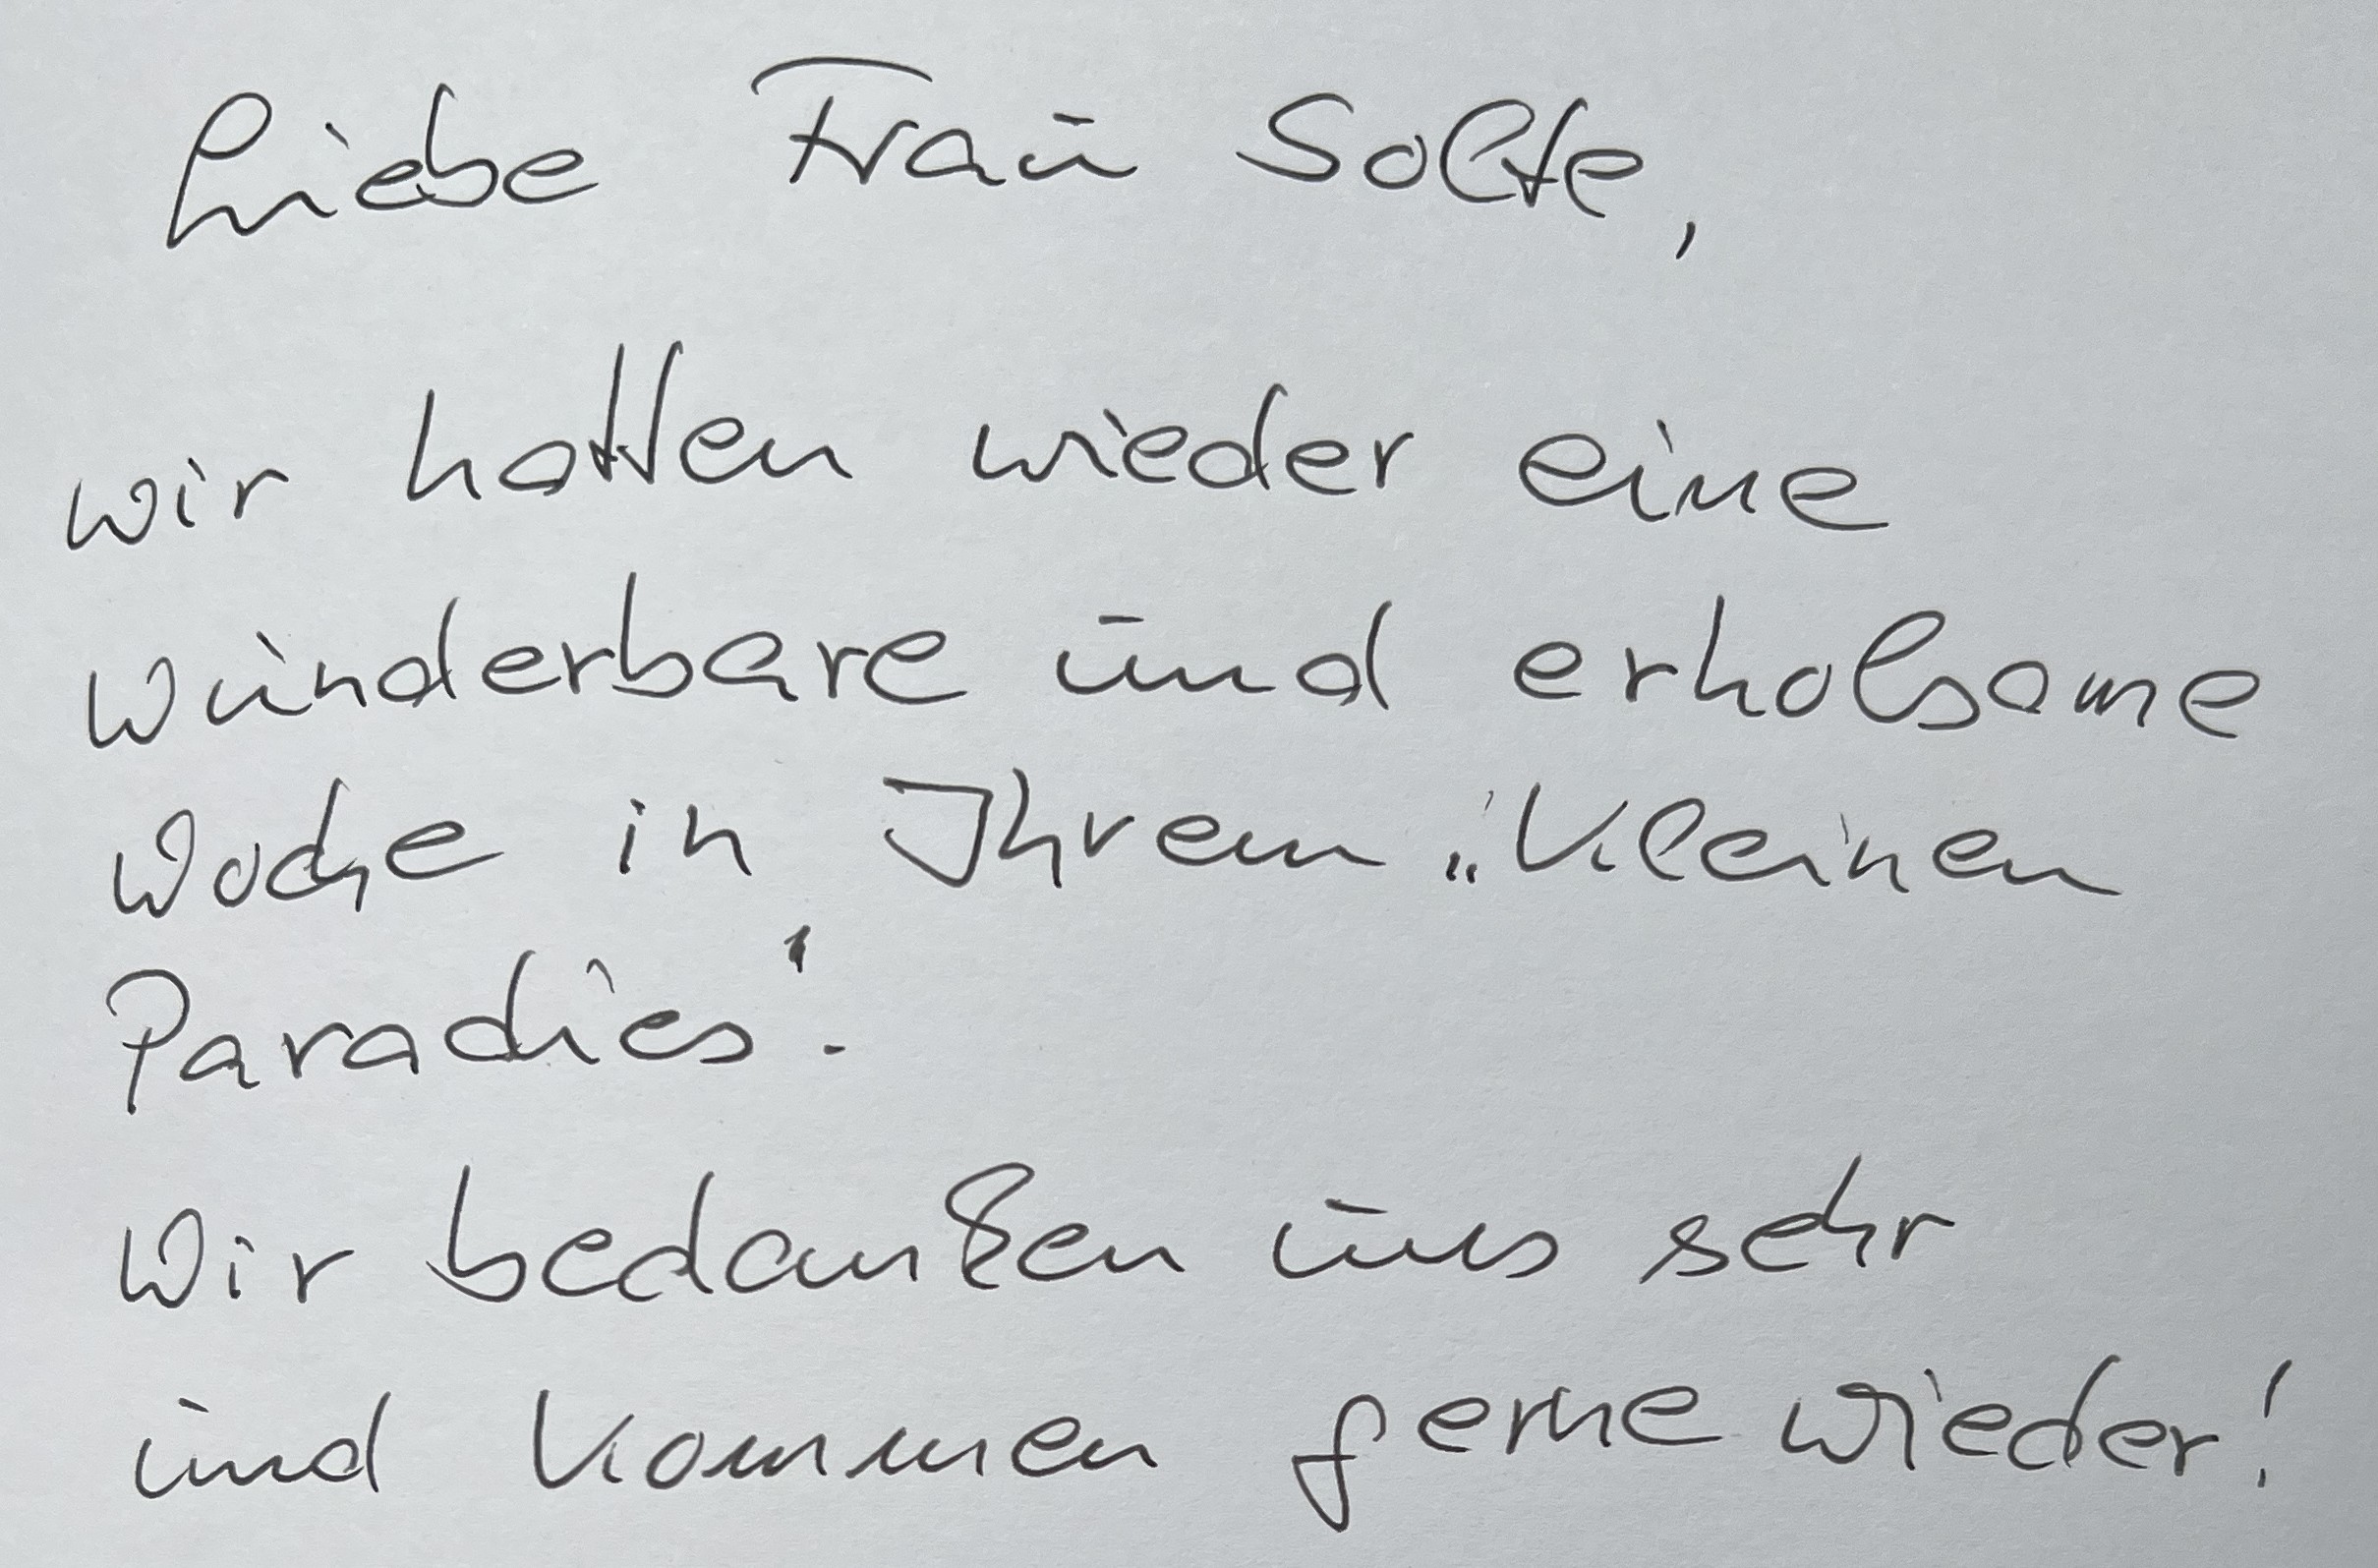 Liebe Frau Solte,
wir hatten wieder eine
wunderbare und erholsame
Woche in Ihrem „Kleinen
Paradies".
Wir bedanken uns sehr
und kommen gerne wieder!